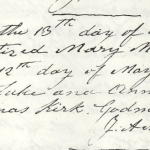 the 13th day of
tired Mary M
12th day of May
Luke and Ann
mas Kirk. Godm
J. A